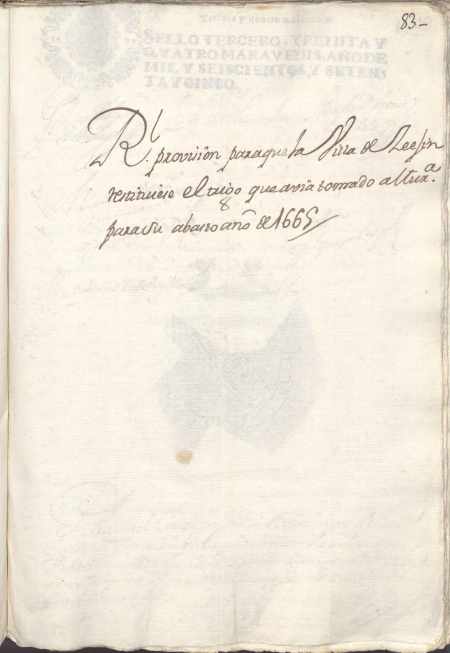 83-
SELLO TERCERO, TREINTA Y
QVATRO MARAVEDIS, AÑO DE
MIL Y SEISCIENTOS Y SETEN
TA Y CINCO.
Rl. provision paraque la Villa de
restituiese el trigo que avia tomado
para su abasto año de 1665